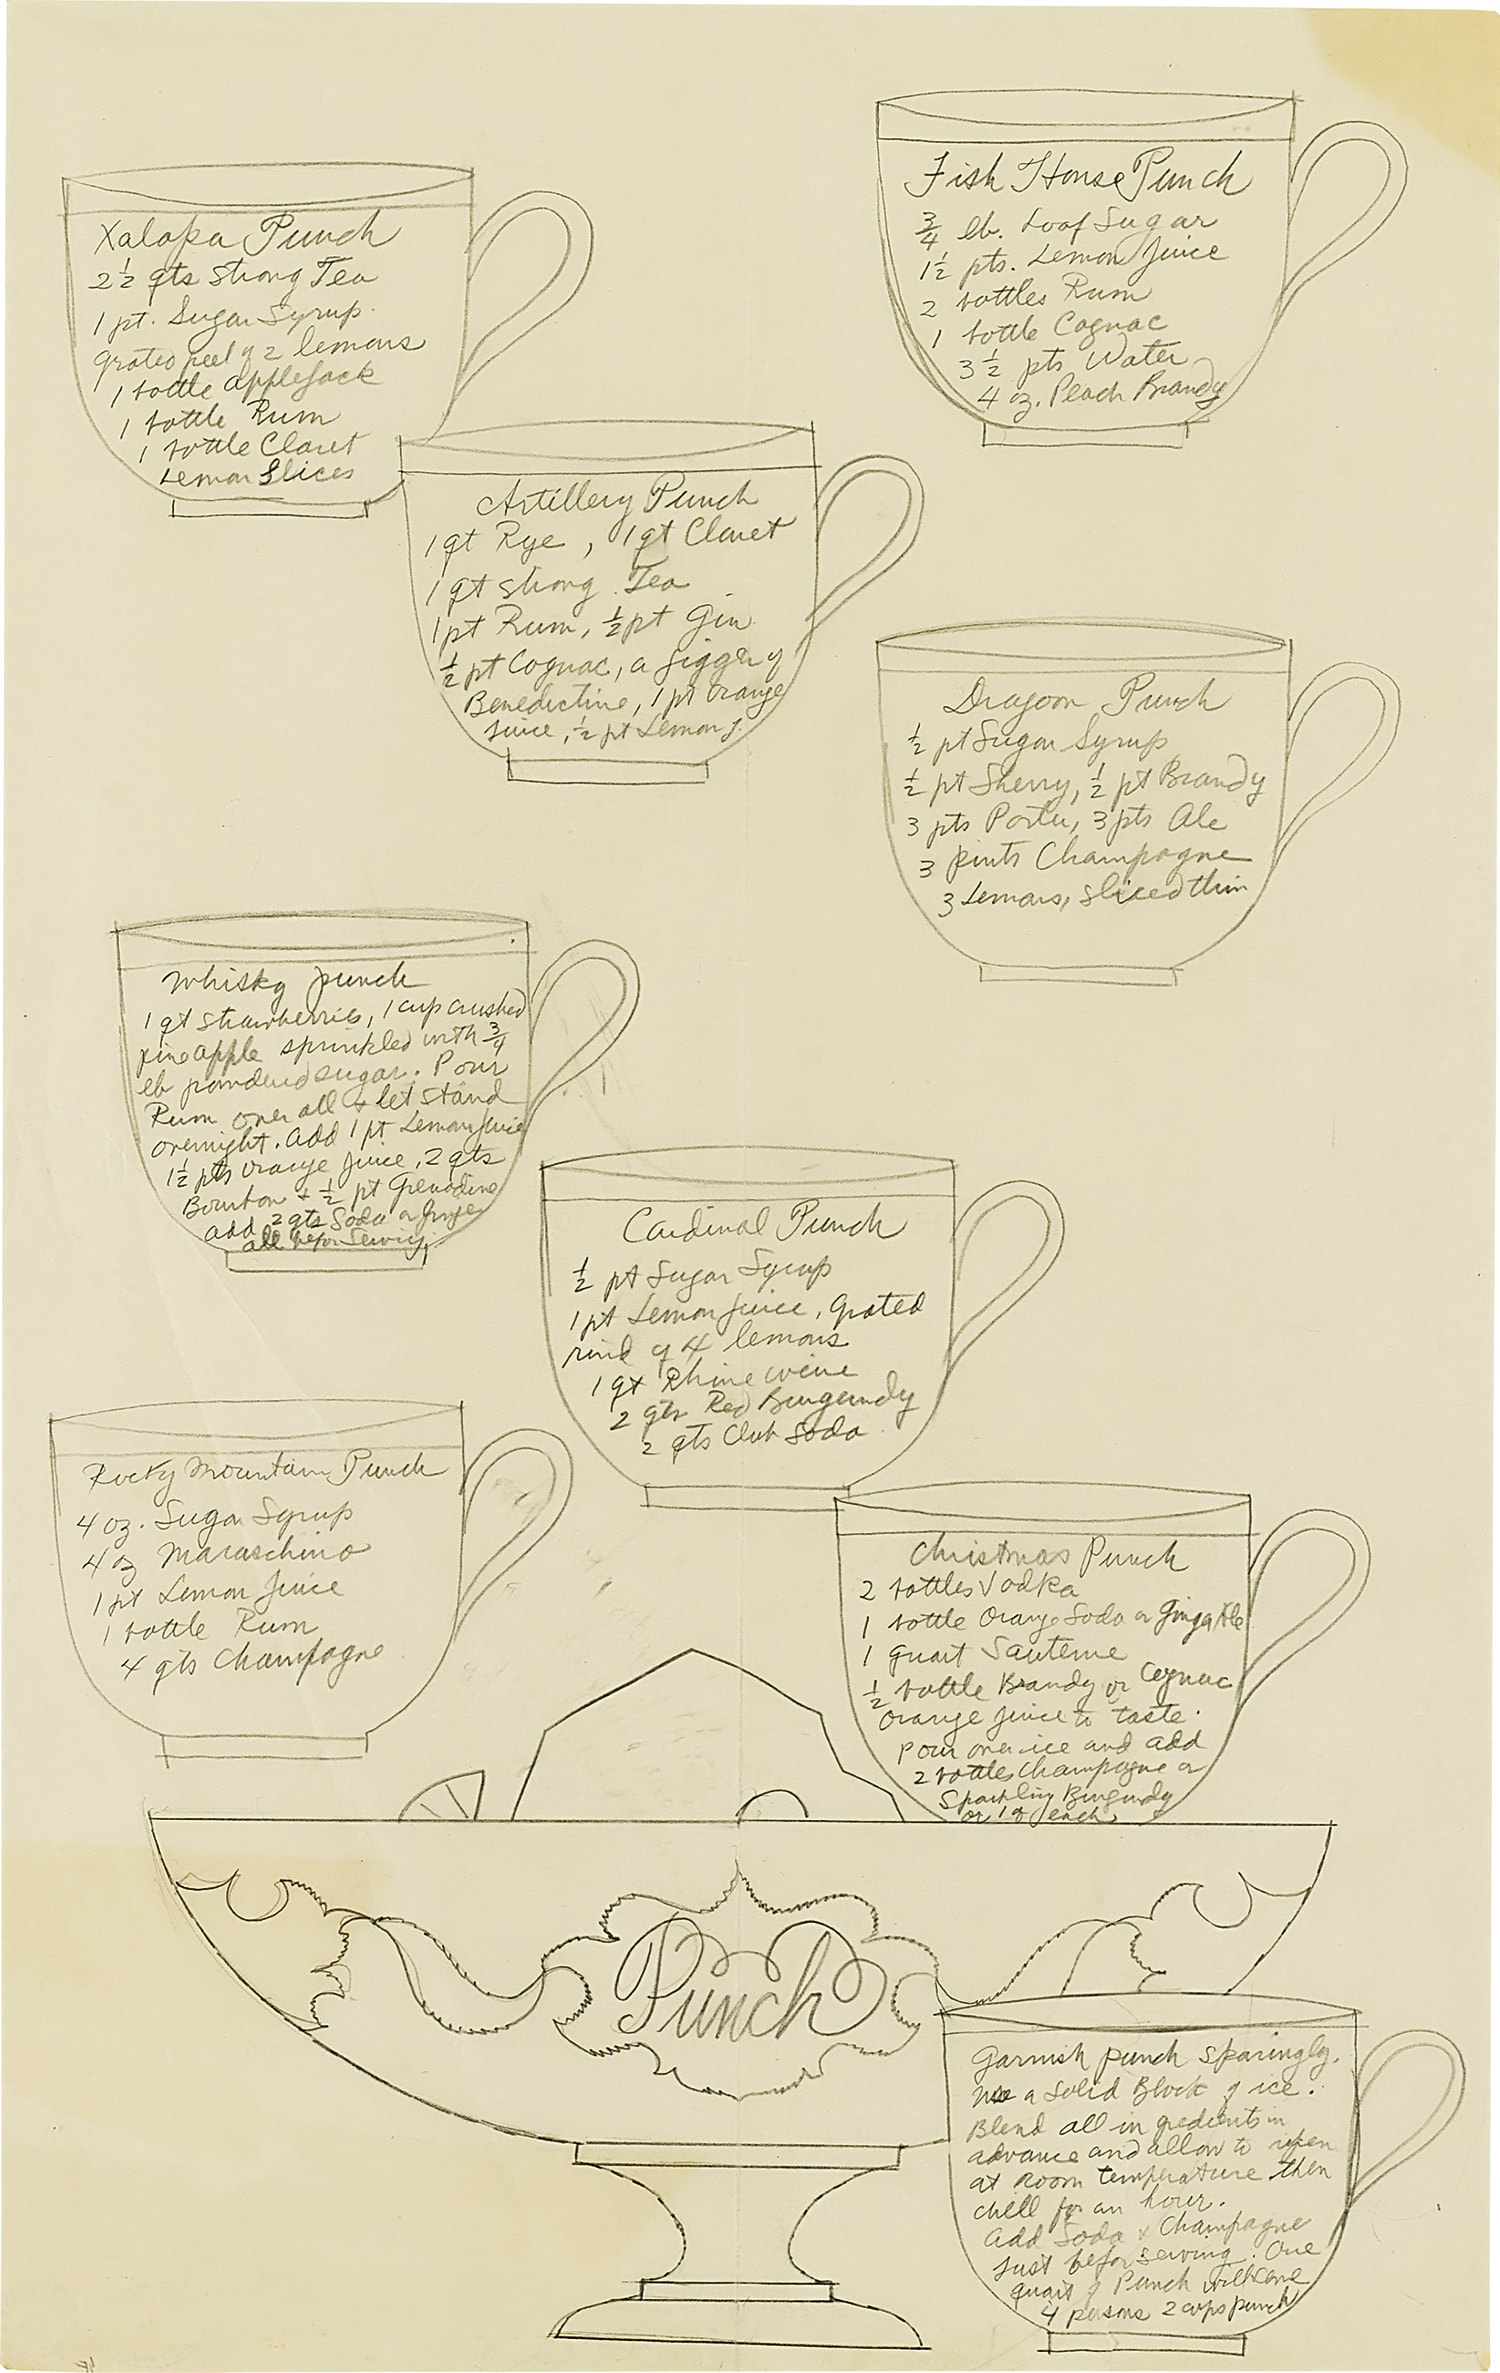 Xalapa Punch
2 ½ qts strong Tea
1 pt. Sugar Syrup
Grated peel of 2 lemons
1 bottle applejack
1 bottle Rum
1 bottle Claret
Lemon Slices
Fish House Punch
¾ lb. Loaf Sugar
1½ pts. Lemon Juice
2 bottles Rum
1 bottle Cognac
3 ½ pts Water
4 oz. Peach Brandy
Artillery Punch
1 qt Rye, 1 qt Claret
1 qt strong Tea
1 pt Rum, ½ pt Gin
½ pt Cognac, a jigger of
Benedictine, 1 pt orange
juice, ½ pt Lemon J.
Dragoon Punch
½ pt Sugar Syrup
½ pt Sherry, ½ pt Brandy
3 pts Porter, 3 pts Ale
3 pints Champagne
3 Lemons, sliced thin
Whisky punch
1 qt strawberries, 1 cup crushed
pineapple sprinkled with ¾
lb powdered sugar. Pour
Rum over all & let stand
overnight. Add 1 pt Lemon Juice
1½ pts orange juice, 2 qts
Bourbon + ½ pt Grenadine
add 2 qts Soda or ginger
ale before serving.
Cardinal Punch
½ pt Sugar Syrup
1 pt Lemon Juice, grated
rind of 4 lemons
1 qt Rhine wine
2 qts Red Burgundy
2 qts Club Soda
Rocky Mountain Punch
4 oz. Sugar Syrup
4 oz Maraschino
1 pt Lemon Juice
1 bottle Rum
4 qts Champagne
Christmas Punch
2 bottles Vodka
1 bottle Orange Soda or Ginger Ale
1 quart Sauterne
½ bottle Brandy or Cognac
orange juice to taste.
Pour over ice and add
2 bottles Champagne or
Sparkling Burgundy
or 1 of each
Punch
Garnish punch sparingly.
Use a solid Block of ice.
Blend all ingredients in
advance and allow to ripen
at room temperature then
chill for an hour.
Add Soda & Champagne
just before serving. One
quart of Punch will serve
4 persons 2 cups punch